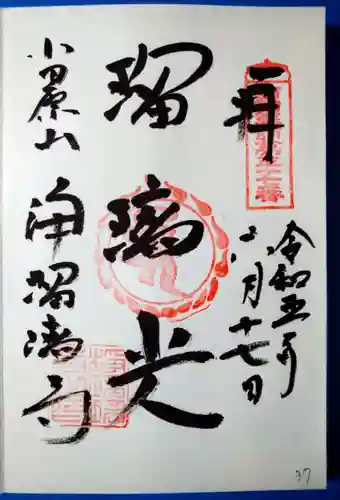 奉拝
令和五年
十一月十七日
瑠璃光
小田原山
浄瑠璃寺
37